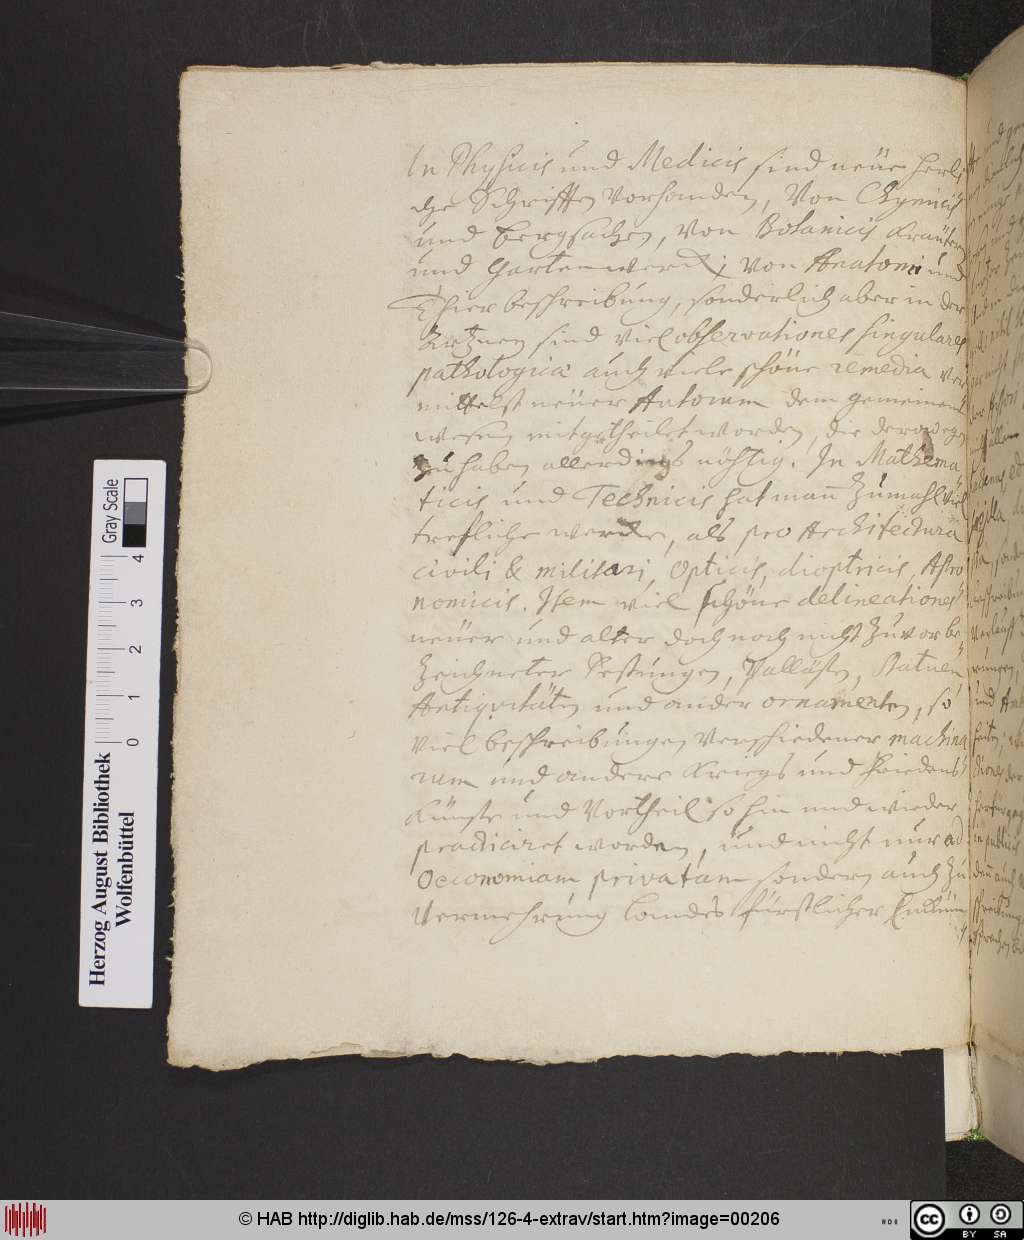 In Physicis und Medicis sind neüe herli
che Schrifften vorhanden, von Chymicis
und bergsachen, von Botanicis Kräutern
und Gartenwerck; von Anatomi und
Thier beschreibung, sonderlich aber in der
Artzney sind viel observationes singulares
pathologica auch viele schöne remedia ver
mittelst neüer Autorum dem gemeinen
wesen mitgetheilet worden, die derowegen
zu haben allerdings nöhtig. In Mathema
ticis und Technicis hat man zumahl viel
trefliche wercke, als pro Architectura
civili & militari, Opticis, dioptricis, Astro
nomicis. Item viel schöne delineationes
neüer und alter doch noch nicht zuvor be
zeichneter Festungen, Palläste, Statuen,
Antiqvitäten und ander ornamenten, so
viel beschreibungen verschiedener machina
rum und andere Kriegs und Friedens
Künste und Vortheil so hin und wieder
practiciret worden, und nicht nur ad
Oeconomiam privatam sondern auch zu
Vermehrung Landes fürstlicher
Herzog August Bibliothek
Wolfenbüttel
Gray Scale
0 1 2 3 4
© HAB http://diglib.hab.de/mss/126-4-extrav/start.htm?image=00206
cc BY SA